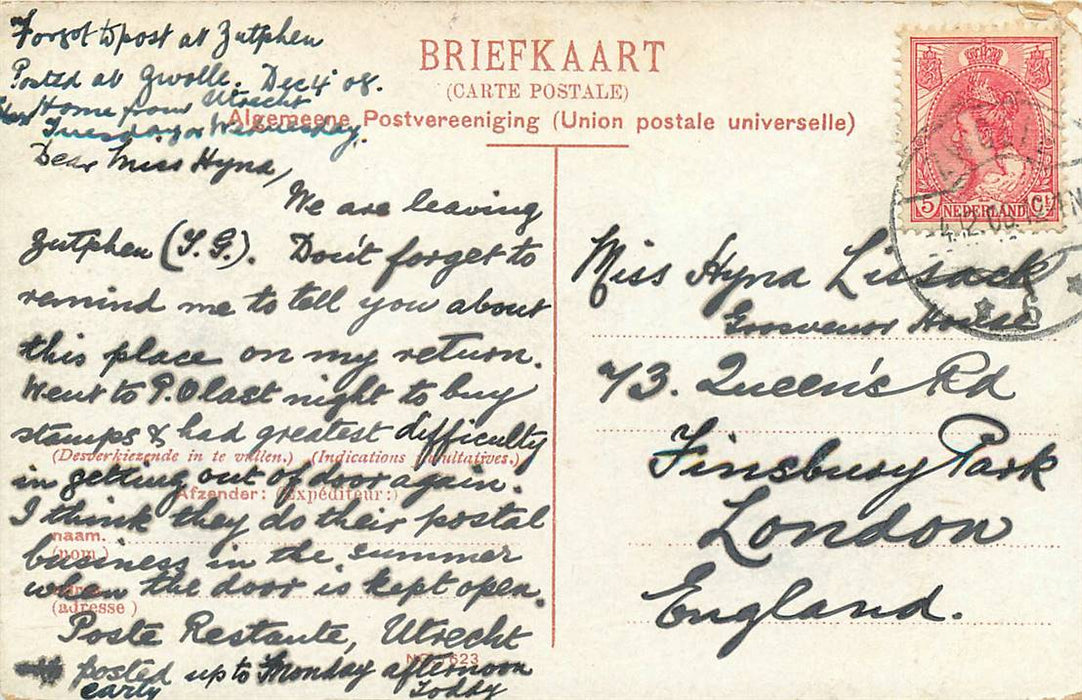 Forgot to post at Zutphen
Posted at Zwolle. Dec 4 08.
Home from Utrecht
Tuesday or Wednesday.
BRIEFKAART
(CARTE POSTALE)
Algemeene Postvereeniging (Union postale universelle)
Dear Miss Hyna,
We are leaving
Zutphen (S.G.). Don't forget to
remind me to tell you about
this place on my return.
Went to P.O last night to buy
stamps & had greatest difficulty
(Desverkiezende in te vullen.) (Indications facultatives.)
in getting out of door again.
Afzender: (Expéditeur:)
I think they do their postal
naam.
(nom)
business in the summer
when the door is kept open.
(adresse)
Poste Restante, Utrecht
623
posted up to Monday afternoon
early Toddy
5 NEDERLAND Ct
4.12.08.12
Miss Hyna Lissack
Grosvenor House
73. Queen's Rd
Finsbury Park
London
England.